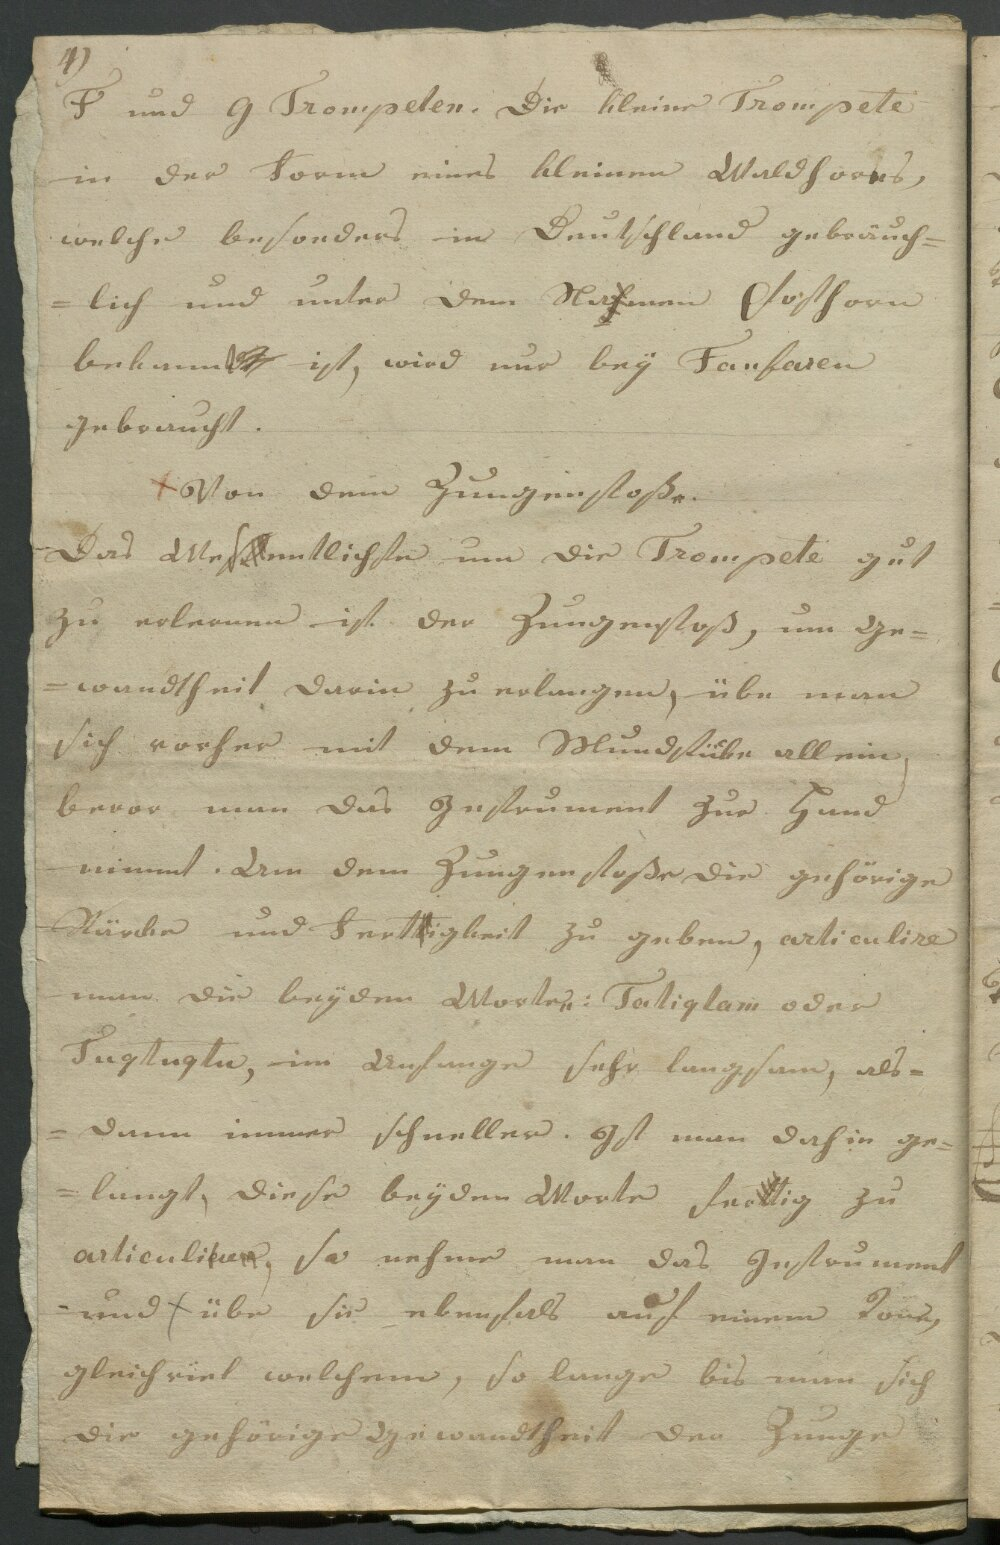 4)
F und G Trompeten. Die kleine Trompete
in der Form eines kleinen Waldhorns,
welche besonders in Deutschland gebräuch=
=lich und unter dem Nahmen Posthorn
bekannt ist, wird nur bey Fanfaren
gebraucht.
Von dem Zungenstoße.
Das Wesentlichste um die Trompete gut
zu erlernen ist der Zungenstoß, um Ge=
=wandtheit darin zu erlangen, übe man
sich vorher mit dem Mundstücke allein,
bevor man das Instrument zur Hand
nimmt. Um dem Zungenstoße die gehörige
Stärke und Fertigkeit zu geben, articulire
man die beyden Worte: Tatiqtam oder
Tuqtuqtu, im Anfange sehr langsam, als=
=dann immer schneller. Ist man dahin ge=
=langt, diese beyden Worte fertig zu
articuliren, so nehme man das Instrument
und übe sie ebenfals auf einem Tone,
gleichviel welchem, so lange bis man sich
die gehörige Gewandtheit der Zunge